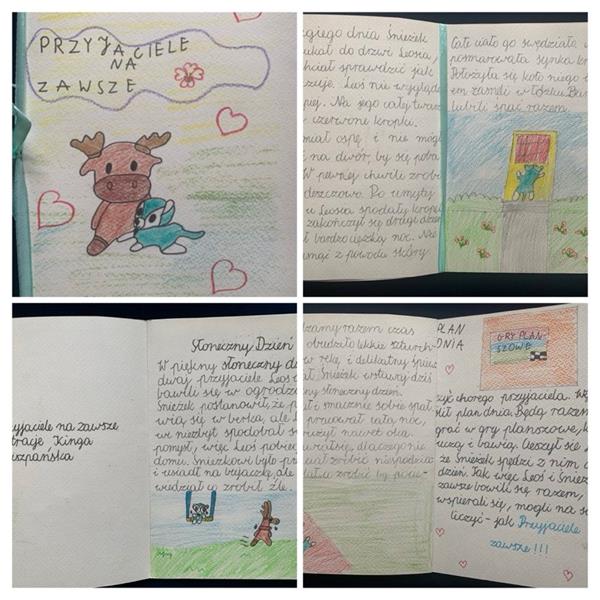 PRZYJACIELE
NA
ZAWSZE
giego dnia Śnieżek
ukał do drzwi Leosia,
chciał sprawdzić jak
czuje. Luś nie wygląda
piej. Na jego całej twarz
czerwone kropki.
miał ospę i nie móg
na dwór, by się poba
W pewnej chwili zrobi
deszczowo. Do umyty
u Leosia spadały krope
zakończył się drugi dzie
bardzo ciężką noc. Nie
z powodu skóry
Całe ciało go swędziało
posmarowała synka kr
Położyła się koło niego
em zasnęli w łóżku. Bar
lubili spać razem.
yjaciele na zawsze
tracje Kinga
uszpańska
Słoneczny Dzień
W piękny słoneczny d
dwaj przyjaciele Leoś
bawili się w ogrodzi
Śnieżek postanowił, że p
wią się w berka, ale L
niezbyt spodobał s
pomysł, więc Leoś pobie
domu. Śnieżkowi było pr
i usiadł na huśtawkę, ale
wiedział co zrobił źle.
dzamy razem czas
obudziło lekkie szturch
w rękę i delikatny śpiew
Śnieżek wstawaj dziś
słoneczny dzień.
i smacznie sobie spał
pracował całą noc,
nawet oka.
dlaczego nie
zrobić niespodzia
PLAN
DNIA
GRY PLAN
SZOWE
chorego przyjaciela.
plan dnia. Będą razem
grać w gry planszowe,
i bawią. Ucieszył się
że Śnieżek spędzi z nim
dzień. Jak więc Leoś i Śnież
zawsze bawili się razem,
wspierali się, mogli na s
liczyć - jak Przyjaciele
zawsze!!!